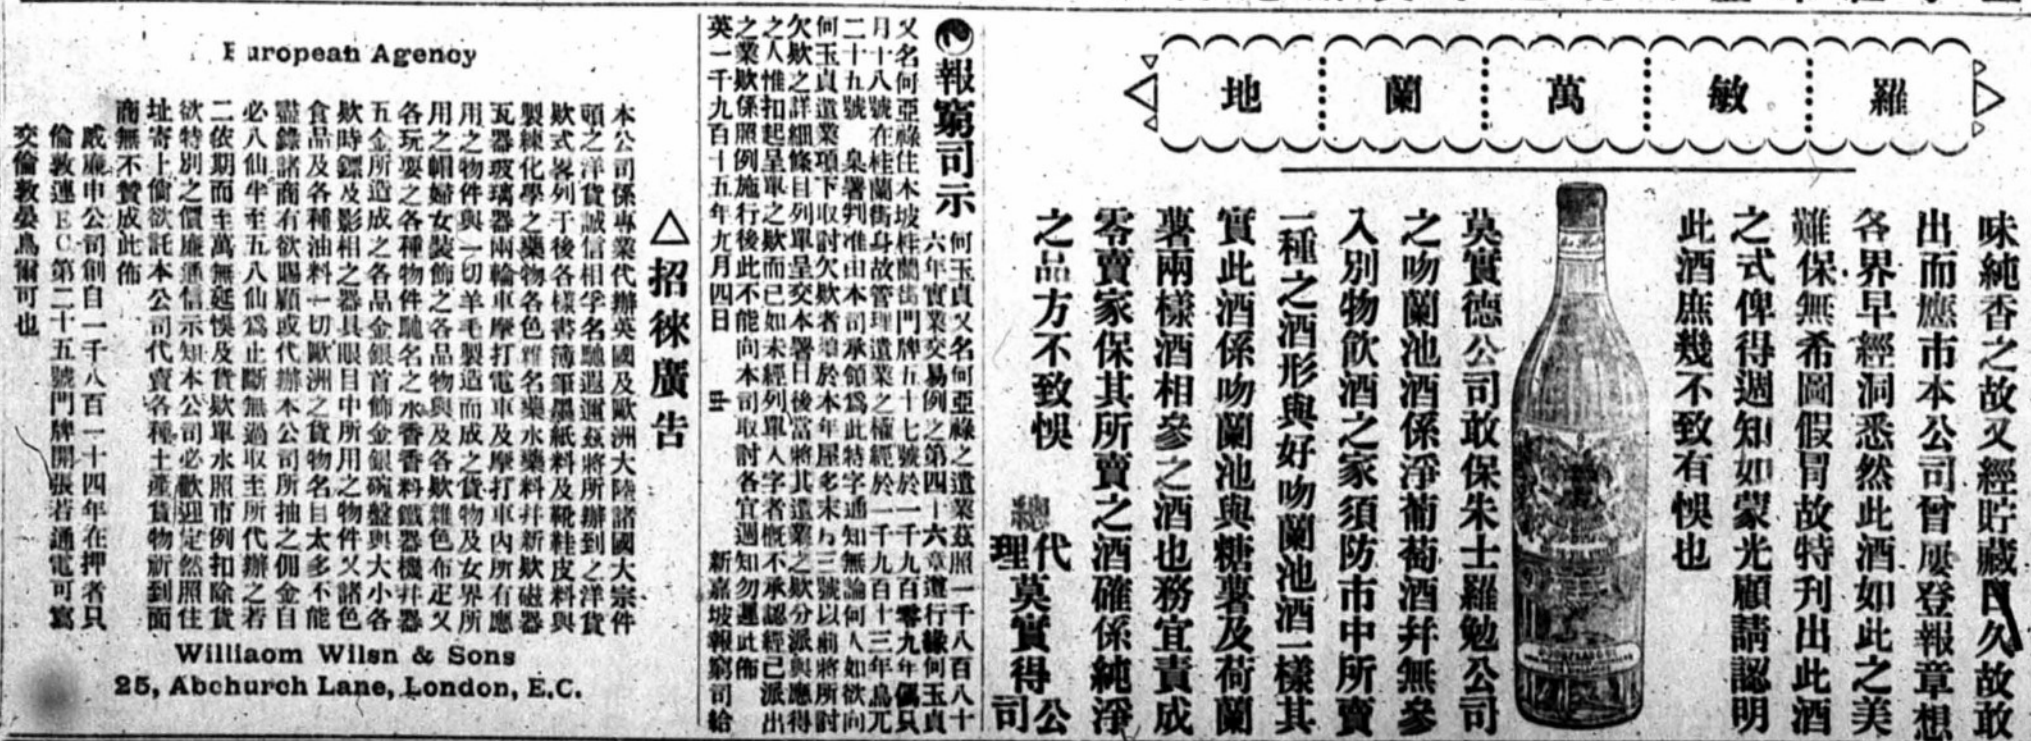 羅敏萬蘭地
味純香之故又經貯藏日久故敢
出而應市本公司曾屢登報章想
各界早經洞悉然此酒如此之美
難保無希圖假冒故特刊出此酒
之式俾得週知如蒙光顧請認明
此酒庶幾不致有悞也
莫實德公司敢保朱士羅勉公司
之吻蘭池酒係淨葡萄酒幷無參
入別物飲酒之家須防市中所賣
一種之酒形與好吻蘭池酒一樣其
實此酒係吻蘭池與糖薯及荷蘭
薯兩樣酒相參之酒也務宜責成
零賣家保其所賣之酒確係純淨
之品方不致悞
總代理莫實得公司
報窮司示
何玉貞又名何亞祿之遺業茲照一千八百八十
六年實業交易例之第四十六章遵行緣何玉貞
又名何亞祿住木坡桂蘭街門牌五十七號於一千九百零九年偶只
月十八號在桂蘭街身故管理遺業之權經於一千九百十三年烏兀
二十五號 臬署判准由本司承領爲此特字通知無論何人如欲向
何玉貞遺業項下取討欠欵者須於本年屋多末乃三號以前將所討
欠欵之詳細條目列單呈交本署日後當將其遺業之欵分派與應得
之人惟扣起呈單之欵而已如未經列單入字者概不承認經已派出
之業欵係照例施行後此不能向本司取討各宜週知勿遲此佈
英一千九百一十五年九月四日 由 新嘉坡報窮司給
△招徠廣告
European Agency
本公司係專業代辦英國及歐洲大陸諸國大宗件
頭之洋貨誠信相孚名馳遐邇茲將所辦到之洋貨
欵式畧列于後各樣書簿筆墨紙料及靴鞋皮料與
製練化學之藥物各色雜名藥水藥料幷新欵磁器
瓦器玻璃器兩輪車摩打電車及摩打車內所有應
用之物件與一切羊毛製造而成之貨物及女界所
用之帽婦女裝飾之各品物與及各欵雜色布疋又
各玩耍之各種物件馳名之水香香料鐵器機井器
五金所造成之各品金銀首飾金銀碗盤與大小各
欵時鏢及影相之器具眼目中所用之物件又諸色
食品及各種油料一切歐洲之貨物名目太多不能
盡錄諸商有欲賜顧或代辦本公司所抽之佣金自
必八仙半至五八仙爲止斷無過取至所代辦之若
二依期而至萬無延悞及貨欵單水照市例扣除貨
欲特別之價廉通信示知本公司必歡迎定然照住
址寄上倘欲託本公司代賣各種土產貨物新到面
商無不贊成此佈
威廉申公司創自一千八百一十四年在押者只
倫敦連EC第二十五號門牌開張若通電可寫
交倫敦晏烏爾可也
Williaom Wilsn & Sons
25, Abchurch Lane, London, E.C.